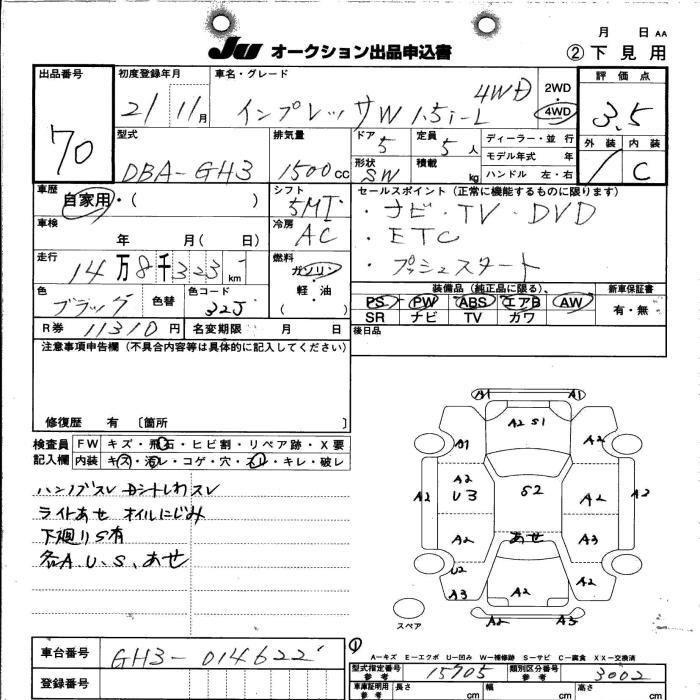 JU オークション出品申込書
月 日 AA
② 下見用
出品番号
70
初度登録年月
21 11月
車名・グレード
インプレッサW 1.5i-L 4WD
2WD
・
4WD
評価点
3.5
外装 内装
C
型式
DBA-GH3
排気量
1500 CC
ドア
5
定員
5 人
形状
SW
積載
kg
ディーラー・並 行
モデル年式 年
ハンドル 左・右
車歴
自家用・( )
シフト
5MT
セールスポイント(正常に機能するものに限ります)
・ナビ・TV・DVD
・ETC
・プッシュスタート
車検
年 月( 日)
冷房
AC
走行
14万8千323km
燃料
ガソリン
・
軽・油
( )
色
ブラック
色替
色コード
32J
装備品(純正品に限る)
PS PW ABS エアB AW
SR ナビ TV ガワ
新車保証書
有・無
R券 11310円
名変期限 月 日
後日品
注意事項申告欄(不具合内容等は具体的に記入してください)
修復歴 有 〔箇所 〕
検査員
記入欄
FW キズ・飛石・ヒビ割・リペア跡・X要
内装 キズ・汚レ・コゲ・穴・スレ・キレ・破レ
ハンドブスレ Dシートしわスレ
ライトあせ オイルにじみ
下廻りS有
各A、U、S、あせ
A1 A1
A2 S1
A1 A2
A2 A2 U3 S2 A2 A2
A2 あせ A3
U2 A3 A2 A2
A2 A3
スペア
①
A-キズ E-エクボ U-凹み W-補修跡 S-サビ C-腐食 XX-交換済
車台番号
GH3-014622
登録番号
型式指定番号
参考
15905
類別区分番号
参考
3002
車庫証明用
参考
長さ cm
幅 cm
高さ cm